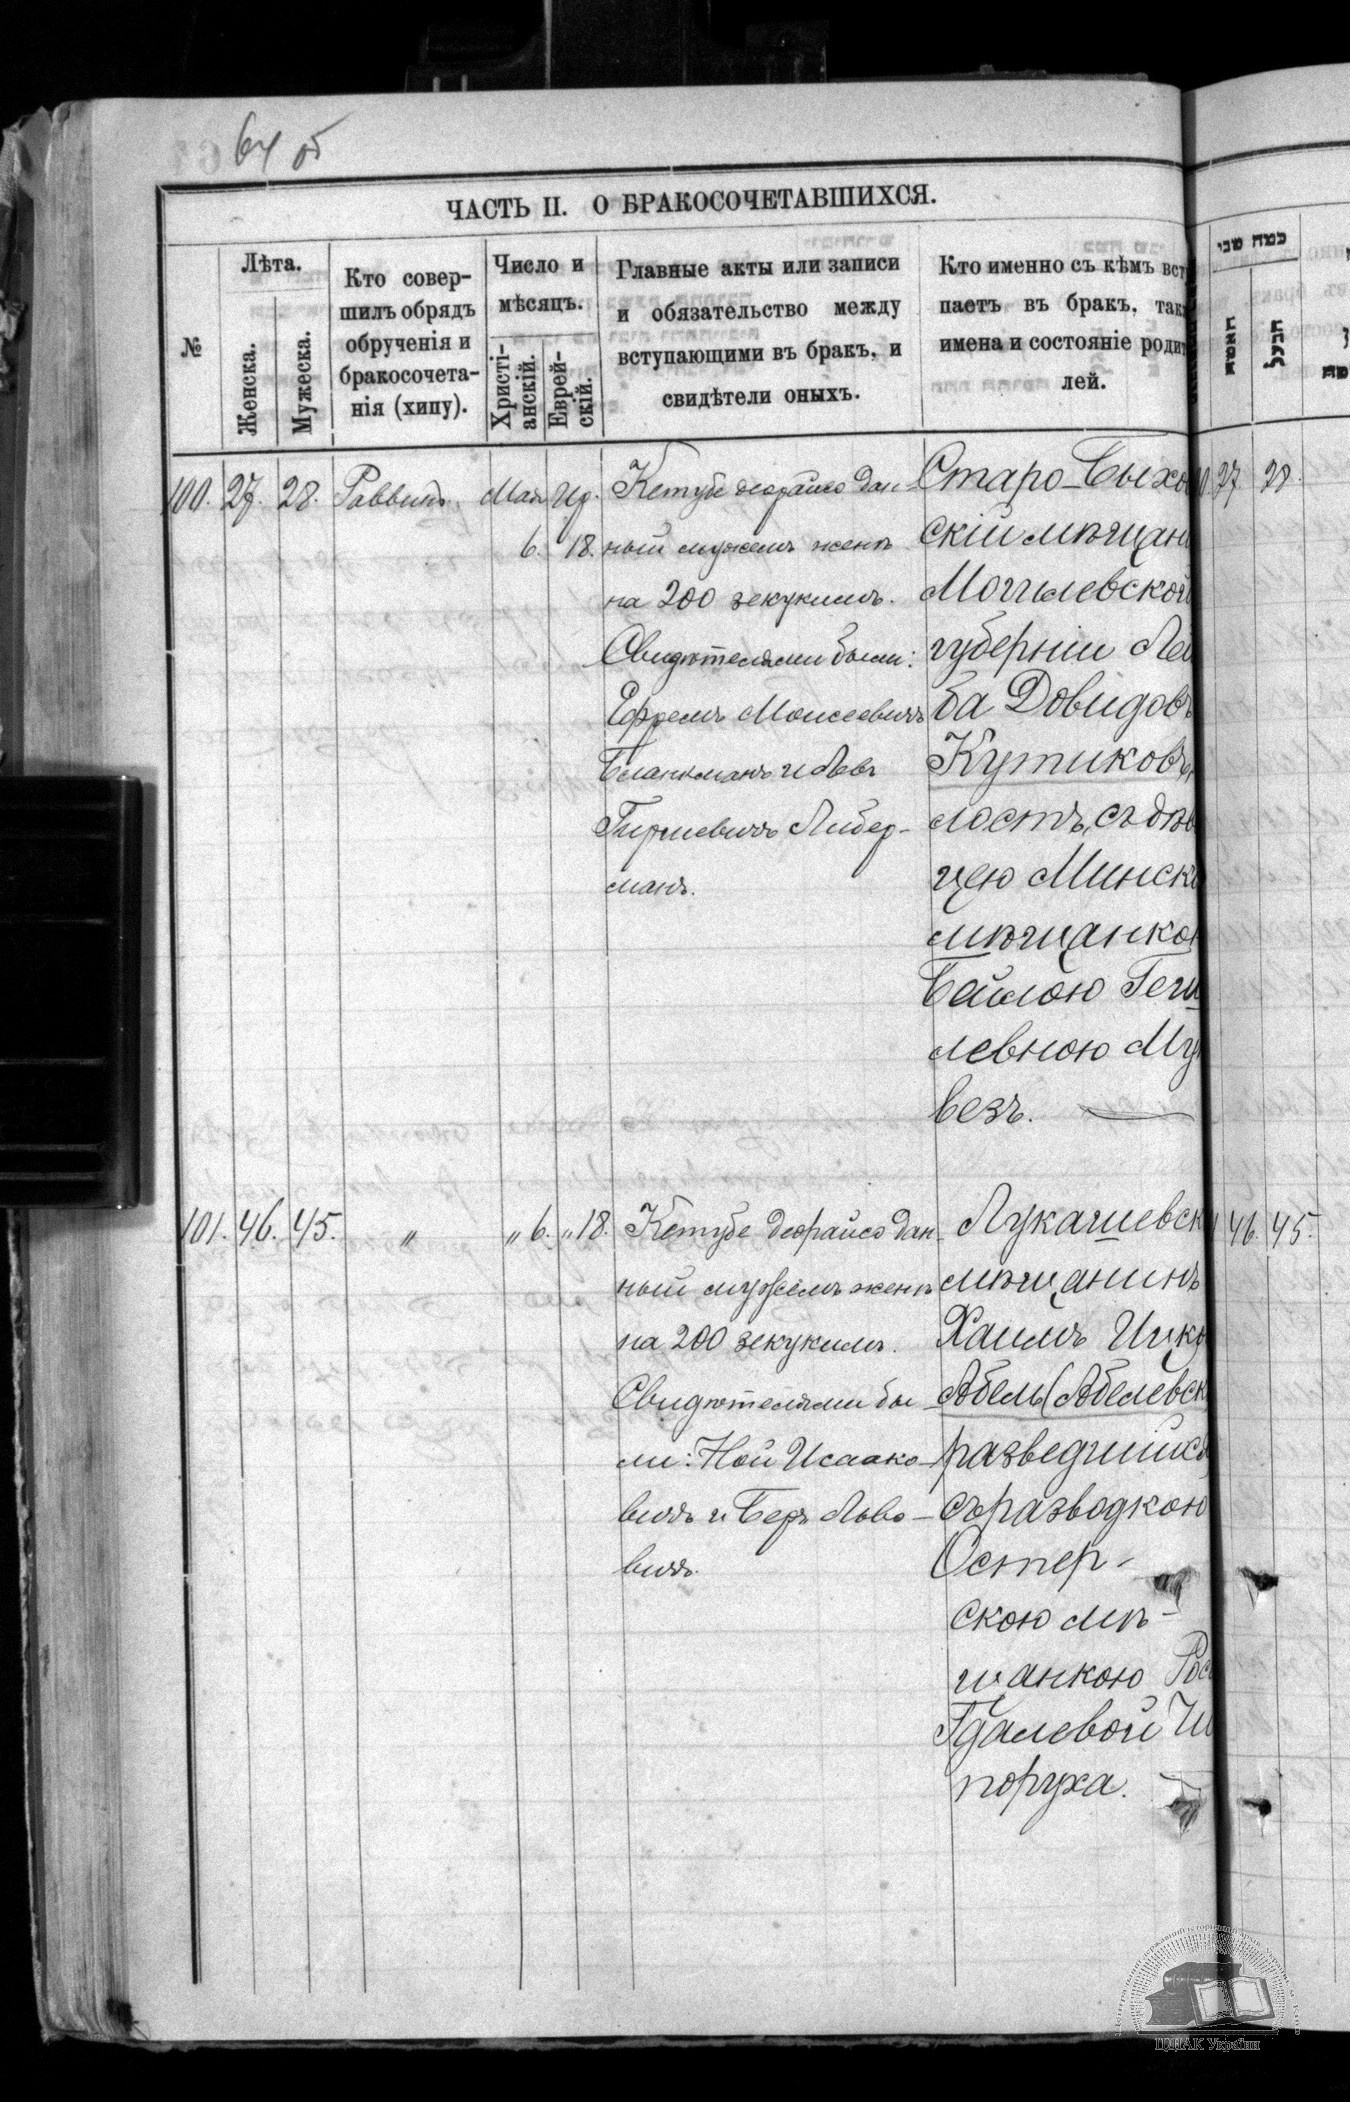 64 об
ЧАСТЬ II. О БРАКОСОЧЕТАВШИХСЯ.
№
Лѣта.
Женска.
Мужеска.
Кто совер-
шилъ обрядъ
обрученія и
бракосочета-
нія (хипу).
Число и
мѣсяцъ.
Христі-
анскій.
Еврей-
скій.
Главные акты или записи
и обязательство между
вступающими въ бракъ, и
свидѣтели оныхъ.
Кто именно съ кѣмъ всту
паетъ въ бракъ, так
имена и состояніе родит
лей.
כמה שני
האשה
הבעל
100. 27. 28. Раввинъ. Мая Ир.
6. 18.
Кетубе деорайсо дан-
ный мужемъ женѣ
на 200 зекукимъ.
Свидѣтелями были:
Ефремъ Моисеевичъ
Бланкманъ и Левъ
Гиршевичъ Либер-
манъ.
Старо-Быхо
скій мѣщани
Могилевской
губерніи Лей
ба Довидовъ
Кутиковъ,
лостъ, съ дѣв
цею Минско
мѣщанкою
Бейлою Геци
левною Му
везъ.
27 28.
101. 46. 45. " " 6. " 18.
Кетубе деорайсо дан-
ный мужемъ женѣ
на 200 зекукимъ.
Свидѣтелями бы-
ли: Ной Исаако-
вичъ и Беръ Льво-
вичъ.
Лукашевск
мѣщанинъ
Хаимъ Ицко
Абель (Абелевск
разведшійся
съ разводкою
Остер-
скою мѣ-
щанкою Рос
Гдалевой Ш
поруха.
46. 45.
ЦДІАК України